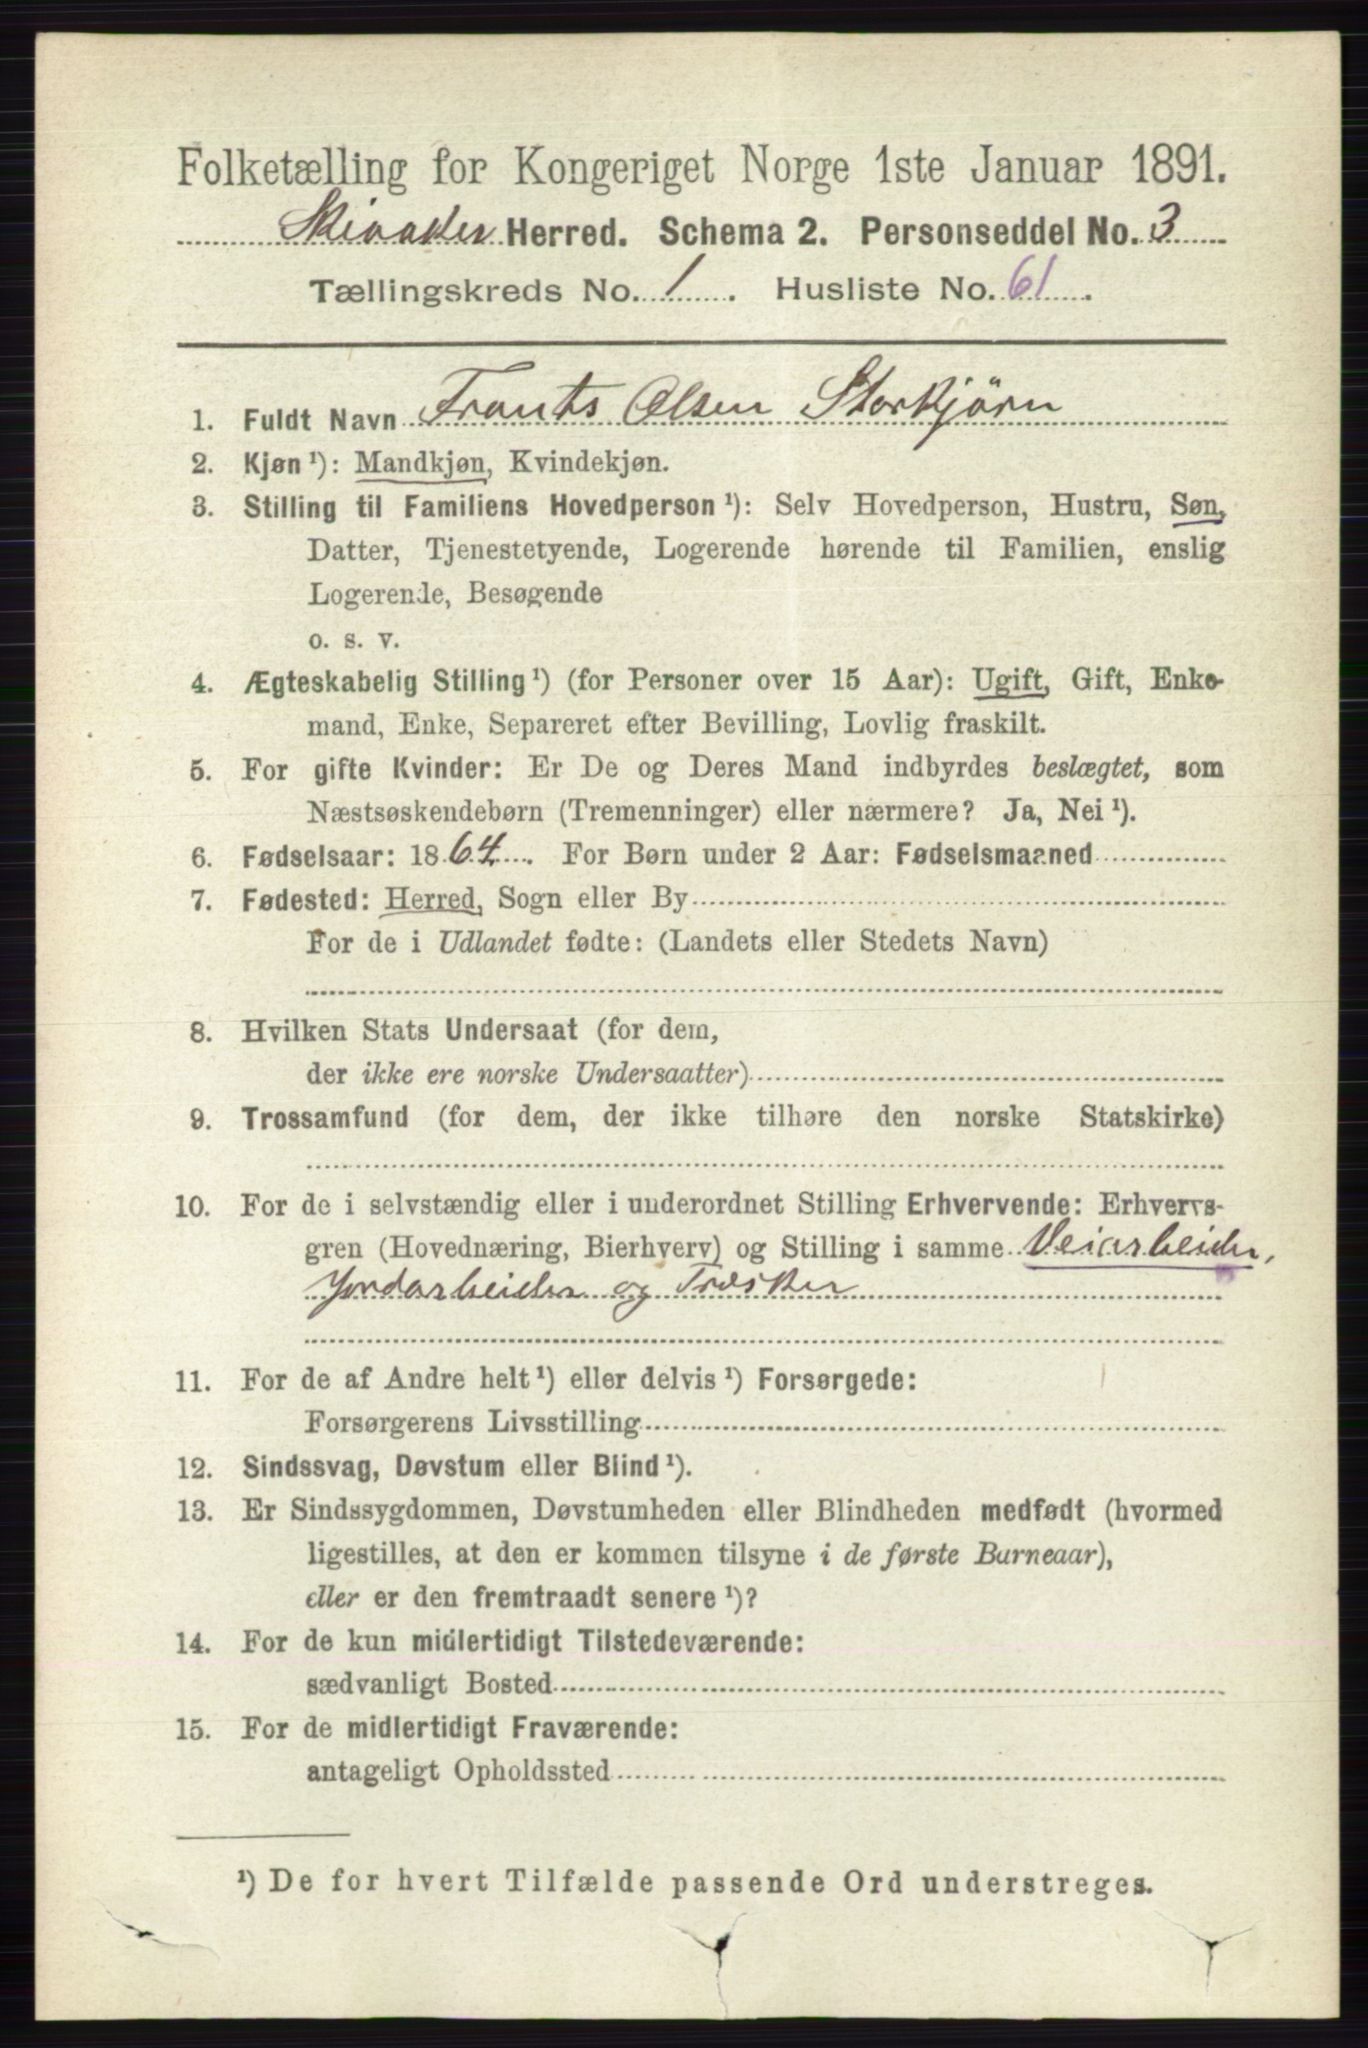 Folketælling for Kongeriget Norge 1ste Januar 1891.
Skiaaker Herred. Schema 2. Personseddel No. 3
Tællingskreds No. 1. Husliste No. 61.
1. Fuldt Navn Frants Olsen Storkjörn
2. Kjøn ¹): Mandkjøn, Kvindekjøn.
3. Stilling til Familiens Hovedperson ¹): Selv Hovedperson, Hustru, Søn,
Datter, Tjenestetyende, Logerende hørende til Familien, enslig
Logerende, Besøgende
o. s. v.
4. Ægteskabelig Stilling ¹) (for Personer over 15 Aar): Ugift, Gift, Enke-
mand, Enke, Separeret efter Bevilling, Lovlig fraskilt.
5. For gifte Kvinder: Er De og Deres Mand indbyrdes beslægtet, som
Næstsøskendebørn (Tremenninger) eller nærmere? Ja, Nei ¹).
6. Fødselsaar: 1864. For Børn under 2 Aar: Fødselsmaaned
7. Fødested: Herred, Sogn eller By
For de i Udlandet fødte: (Landets eller Stedets Navn)
8. Hvilken Stats Undersaat (for dem,
der ikke ere norske Undersaatter)
9. Trossamfund (for dem, der ikke tilhøre den norske Statskirke)
10. For de i selvstændig eller i underordnet Stilling Erhvervende: Erhvervs-
gren (Hovednæring, Bierhverv) og Stilling i samme Veiarbeider,
Jordarbeider og Træsker
11. For de af Andre helt ¹) eller delvis ¹) Forsørgede:
Forsørgerens Livsstilling
12. Sindssvag, Døvstum eller Blind ¹).
13. Er Sindssygdommen, Døvstumheden eller Blindheden medfødt (hvormed
ligestilles, at den er kommen tilsyne i de første Barneaar),
eller er den fremtraadt senere ¹)?
14. For de kun midlertidigt Tilstedeværende:
sædvanligt Bosted
15. For de midlertidigt Fraværende:
antageligt Opholdssted
¹) De for hvert Tilfælde passende Ord understreges.